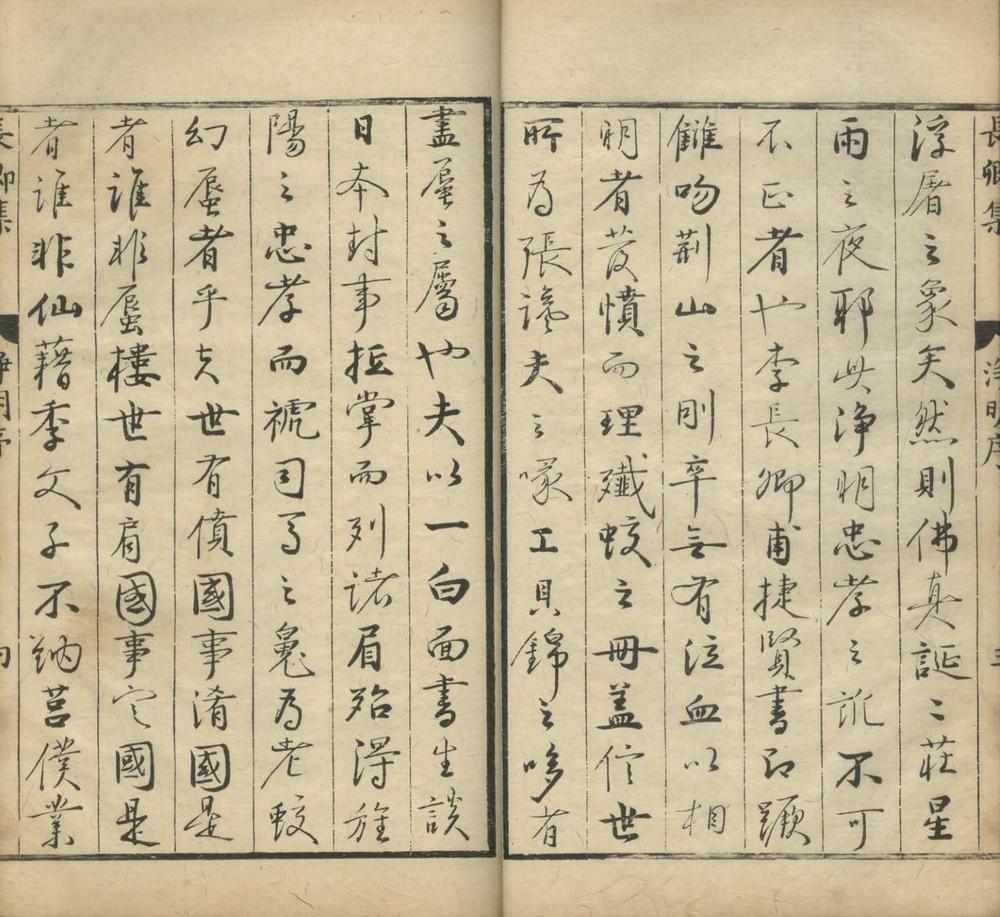 長卿集 淨明序
浮屠之象矣然則佛真誕二莊星
雨之夜耶此淨明忠孝之說不可
不正者也李長卿甫捷賢書即蹶
雠吻荊山之刖卒無有泣血以相
明者發憤而理殲蛟之冊蓋信世
所為張讒夫之喙工貝錦之哆有
盡蜃之屬也夫以一白面書生談
日本封事抵掌而列諸眉殆得旌
陽之忠孝而褫司馬之鬼為老蛟
幻蜃者乎夫世有僨國事淆國是
者誰非蜃樓世有肩國事定國是
者誰非仙藉季文子不納莒僕業
長卿集 淨明序